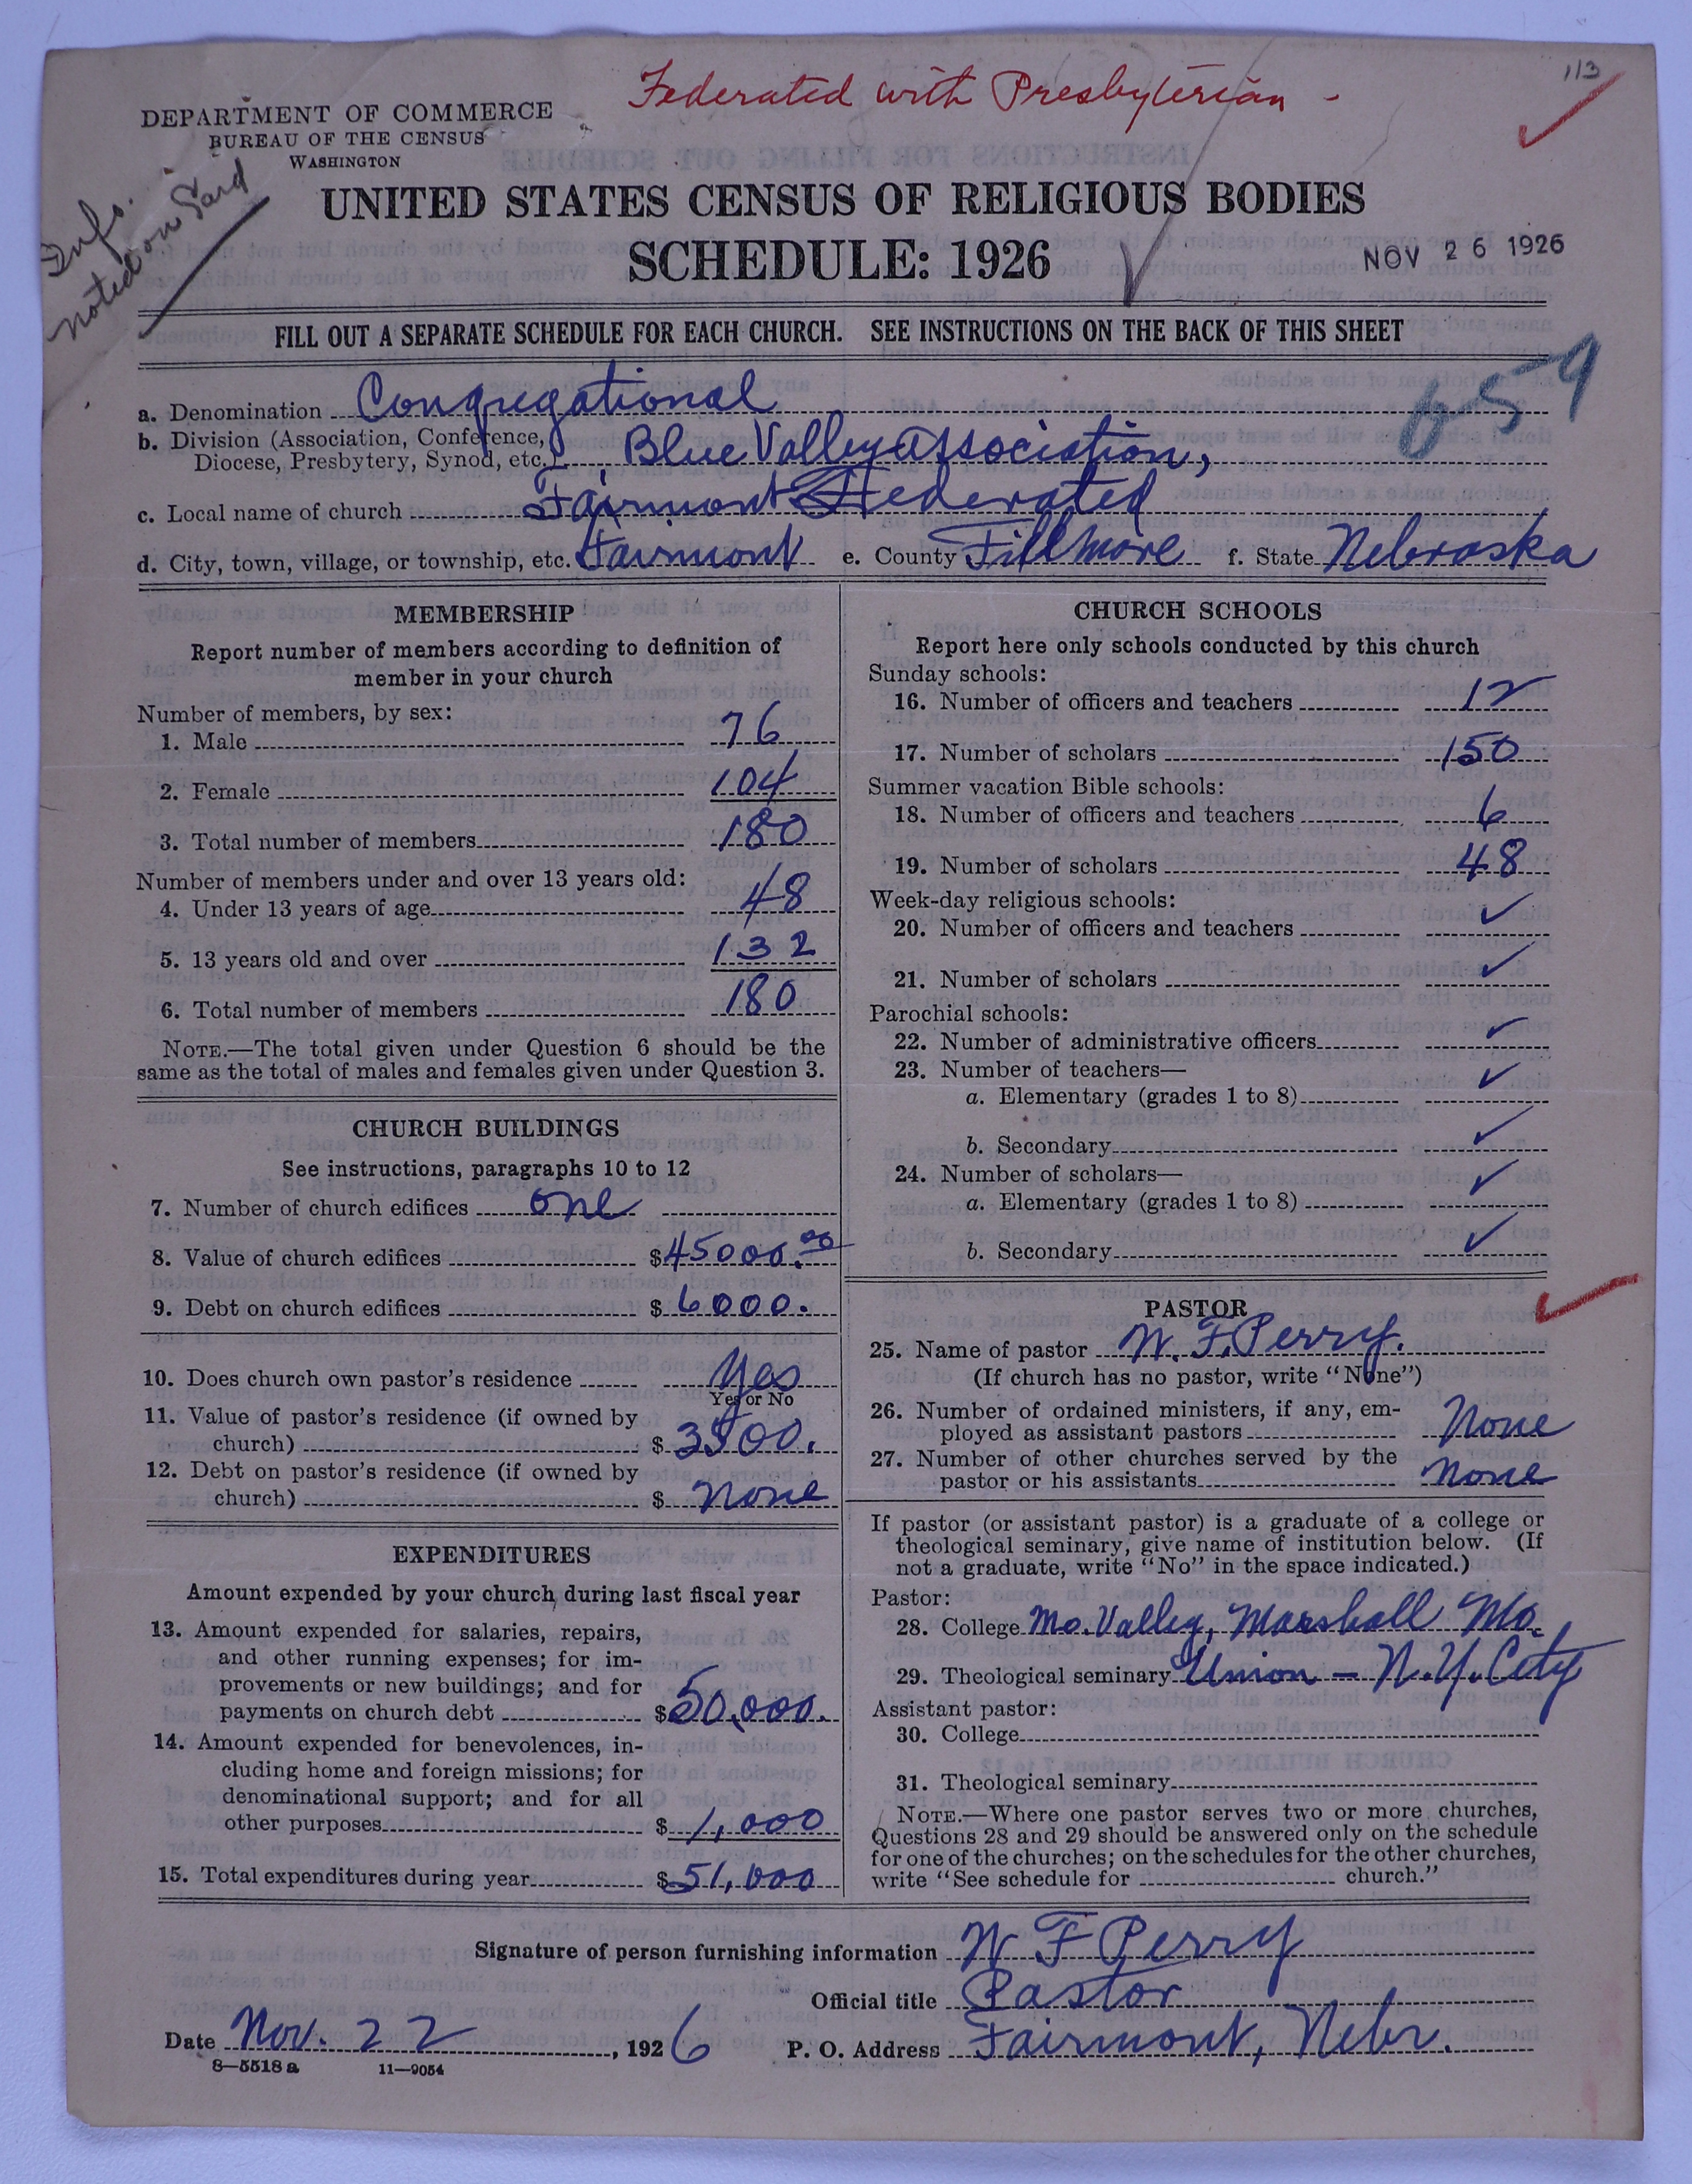 Federated with Presbyterian -
113
DEPARTMENT OF COMMERCE
BUREAU OF THE CENSUS
WASHINGTON
Info.
noted on Card
UNITED STATES CENSUS OF RELIGIOUS BODIES
SCHEDULE: 1926
NOV 26 1926
FILL OUT A SEPARATE SCHEDULE FOR EACH CHURCH. SEE INSTRUCTIONS ON THE BACK OF THIS SHEET
659
a. Denomination Congregational
b. Division (Association, Conference,
Diocese, Presbytery, Synod, etc.) Blue Valley Association,
c. Local name of church Fairmont Federated
d. City, town, village, or township, etc. Fairmont e. County Fillmore f. State Nebraska
MEMBERSHIP
Report number of members according to definition of
member in your church
Number of members, by sex:
1. Male 76
2. Female 104
3. Total number of members 180
Number of members under and over 13 years old:
4. Under 13 years of age 48
5. 13 years old and over 132
6. Total number of members 180
NOTE.—The total given under Question 6 should be the
same as the total of males and females given under Question 3.
CHURCH BUILDINGS
See instructions, paragraphs 10 to 12
7. Number of church edifices one
8. Value of church edifices $45000.00
9. Debt on church edifices $6000.
10. Does church own pastor's residence Yes
Yes or No
11. Value of pastor's residence (if owned by
church) $3500.
12. Debt on pastor's residence (if owned by
church) $ none
EXPENDITURES
Amount expended by your church during last fiscal year
13. Amount expended for salaries, repairs,
and other running expenses; for im-
provements or new buildings; and for
payments on church debt $50,000.
14. Amount expended for benevolences, in-
cluding home and foreign missions; for
denominational support; and for all
other purposes $1,000
15. Total expenditures during year $51,000
CHURCH SCHOOLS
Report here only schools conducted by this church
Sunday schools:
16. Number of officers and teachers 12
17. Number of scholars 150
Summer vacation Bible schools:
18. Number of officers and teachers 6
19. Number of scholars 48
Week-day religious schools:
20. Number of officers and teachers ✓
21. Number of scholars ✓
Parochial schools:
22. Number of administrative officers ✓
23. Number of teachers—
a. Elementary (grades 1 to 8) ✓
b. Secondary ✓
24. Number of scholars—
a. Elementary (grades 1 to 8) ✓
b. Secondary ✓
PASTOR
25. Name of pastor W. F. Perry.
(If church has no pastor, write "None")
26. Number of ordained ministers, if any, em-
ployed as assistant pastors None
27. Number of other churches served by the
pastor or his assistants None
If pastor (or assistant pastor) is a graduate of a college or
theological seminary, give name of institution below. (If
not a graduate, write "No" in the space indicated.)
Pastor:
28. College Mo. Valley, Marshall Mo.
29. Theological seminary Union - N.Y. City
Assistant pastor:
30. College
31. Theological seminary
NOTE.—Where one pastor serves two or more churches,
Questions 28 and 29 should be answered only on the schedule
for one of the churches; on the schedules for the other churches,
write "See schedule for church."
Signature of person furnishing information W F Perry
Official title Pastor
Date Nov. 22, 1926 P. O. Address Fairmont, Nebr.
8—5518 a 11—9054